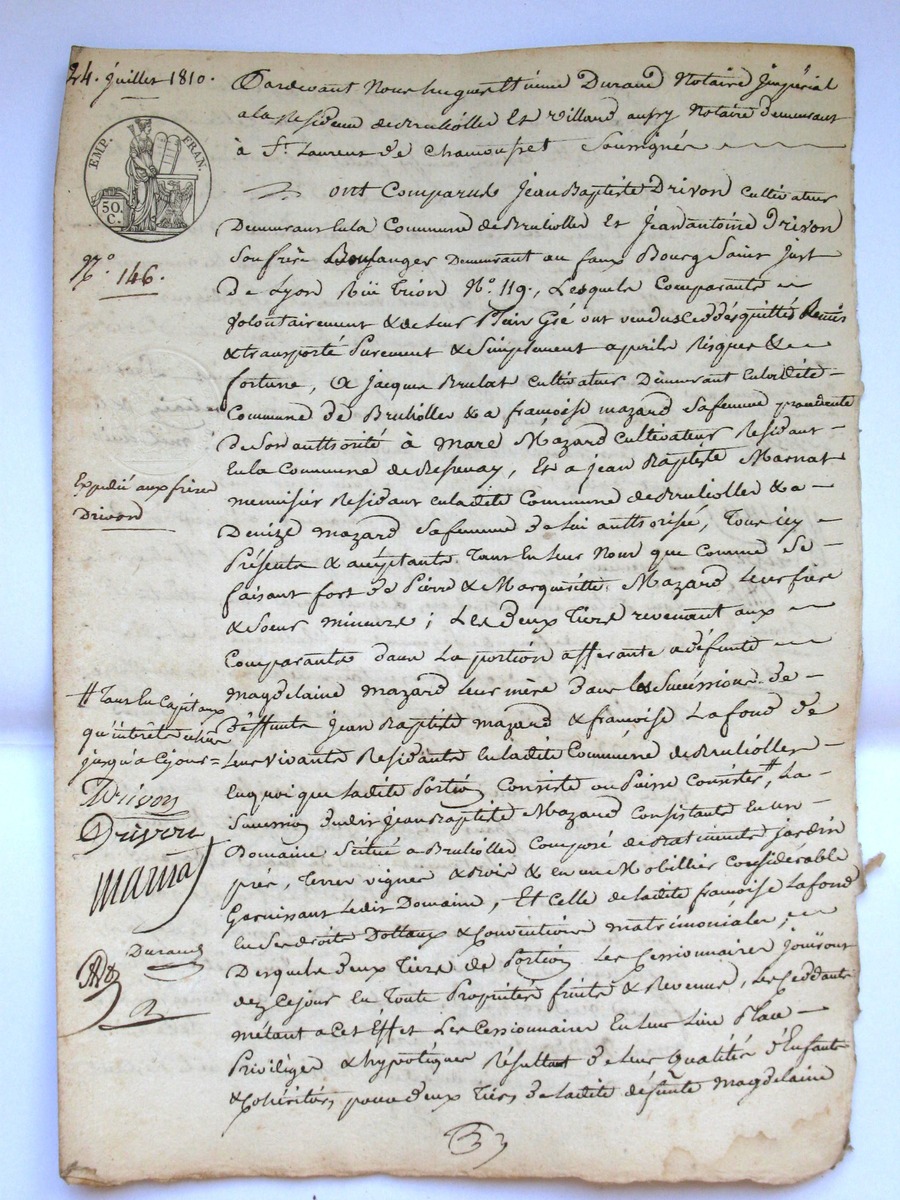 24. juillet 1810.
EMP. FRAN.
50 C.
N.o 146.
Expedié aux frères
Drivon
# Tant en Capitaux
qu'interêts
jusqu'a Ce jour =
Drivon
Drivon
Marnat
Durand
Pardevant Nous Etienne Durand Notaire Jmpérial
a la Residence de Brulliolles Et Villard aussy Notaire demeurant
à St. Laurent de Chamousset Soussignés
ont Comparus Jean Baptiste Drivon Cultivateur
Demeurant En la Commune de Brulliolles Et Jean antoine Drivon
Son frère Boulanger Demeurant au faux Bourg Saint Just
De Lyon Rüe Trion N.o 119., Lesquels Comparants
volontairement & de leur plein Gré ont vendus Cedés quittés Remis
& transporté Purement & Simplement a perils Risques &
fortune, a Jacques Brulat Cultivateur Demeurant En ladite
Commune de Brulliolles & a françoise mazard Sa femme
De Son authorité à marc Mazard Cultivateur Residant
En la Commune de , Et a jean Baptiste Marnat
menuisier Residant en ladite Commune de Brulliolles & a
Denize mazard Sa femme de lui authorisée, Tous icy
Présents & acceptants Tant En leur Nom que Comme Se
faisant fort de Pierre & Marguerite Mazard leur frère
& Soeur mineurs ; Les deux Tiers revenant aux
Comparants dans La portion afferante a défunte
magdelaine mazard leur mère dans la Succession de
deffunts jean Baptiste mazard & françoise Lafond de
leur vivants Residants En ladite Commune de Brulliolles
En quoi que ladite Portion Consiste ou Puisse Consister #, La
Succession dudit jean Baptiste Mazard Consistante En un
Domaine Situé a Brulliolles Composé de Batiments jardin
prés, Terres vignes & bois & en un Mobillier Considérable
Garnissant Ledit Domaine, Et Celle de ladite françoise Lafond
En Ses droits Dottaux & Conventions matrimoniales ;
Desquels deux Tiers de Portion Les Cessionnaires jouiront
dez Ce jour En Toute Propriété fruits & Revenus, Les Ceddants
métant a Cet Effet Les Cessionnaires En leur Lieu Place
Priviléges & hypotéques Résultant de leur qualités d'Enfants
& Cohéritiers pour deux Tiers de ladite défunte magdelaine